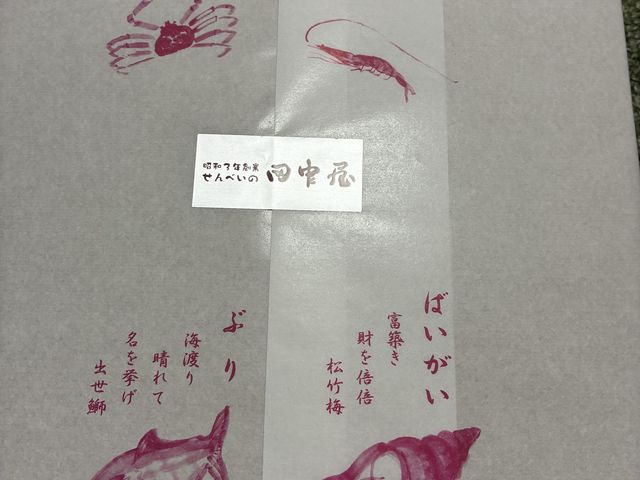 昭和3年創業
せんべいの 田中屋
ばいがい
富築き
財を倍倍
松竹梅
ぶり
海渡り
晴れて
名を挙げ
出世鰤